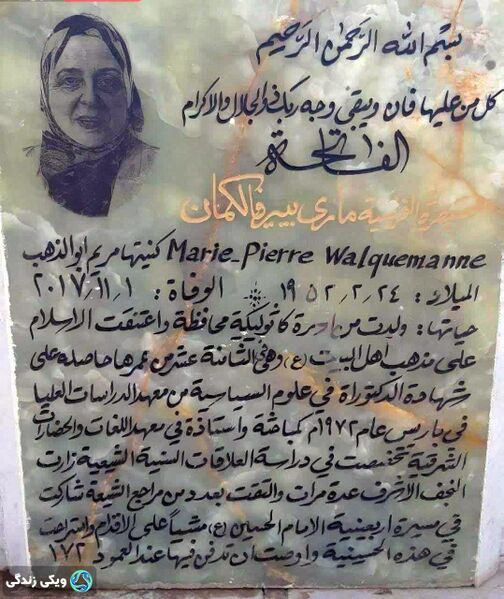 بسم الله الرحمن الرحيم
كل من عليها فان ويبقى وجه ربك ذو الجلال والاكرام
الفاتحة
ماري بيير فالكمان
Marie-Pierre Walquemanne كنيتها مريم ابو الذهب
الميلاد : ٢٤ . ٢ . ١٩٥٢ الوفاة : ١ . ١١ . ٢٠١٧
حياتها : ولدت من اسرة كاثوليكية محافظة واعتنقت الاسلام
على مذهب اهل البيت (ع) وهي في الثامنة عشر من عمرها حاصله على
شهادة الدكتوراة في علوم السياسية من معهد الدراسات العليا
في باريس عام ١٩٧٢م كباحثة واستاذة في معهد اللغات والحضارات
الشرقية تخصصت في دراسة العلاقات السنية الشيعية زارت
النجف الاشرف عدة مرات والتقت بعدد من مراجع الشيعة شاركت
في مسيرة اربعينية الامام الحسين (ع) مشياً على الاقدام واستراحت
في هذه الحسينية واوصت ان تدفن فيها عند العمود ١٧٢
ویکی زندگی